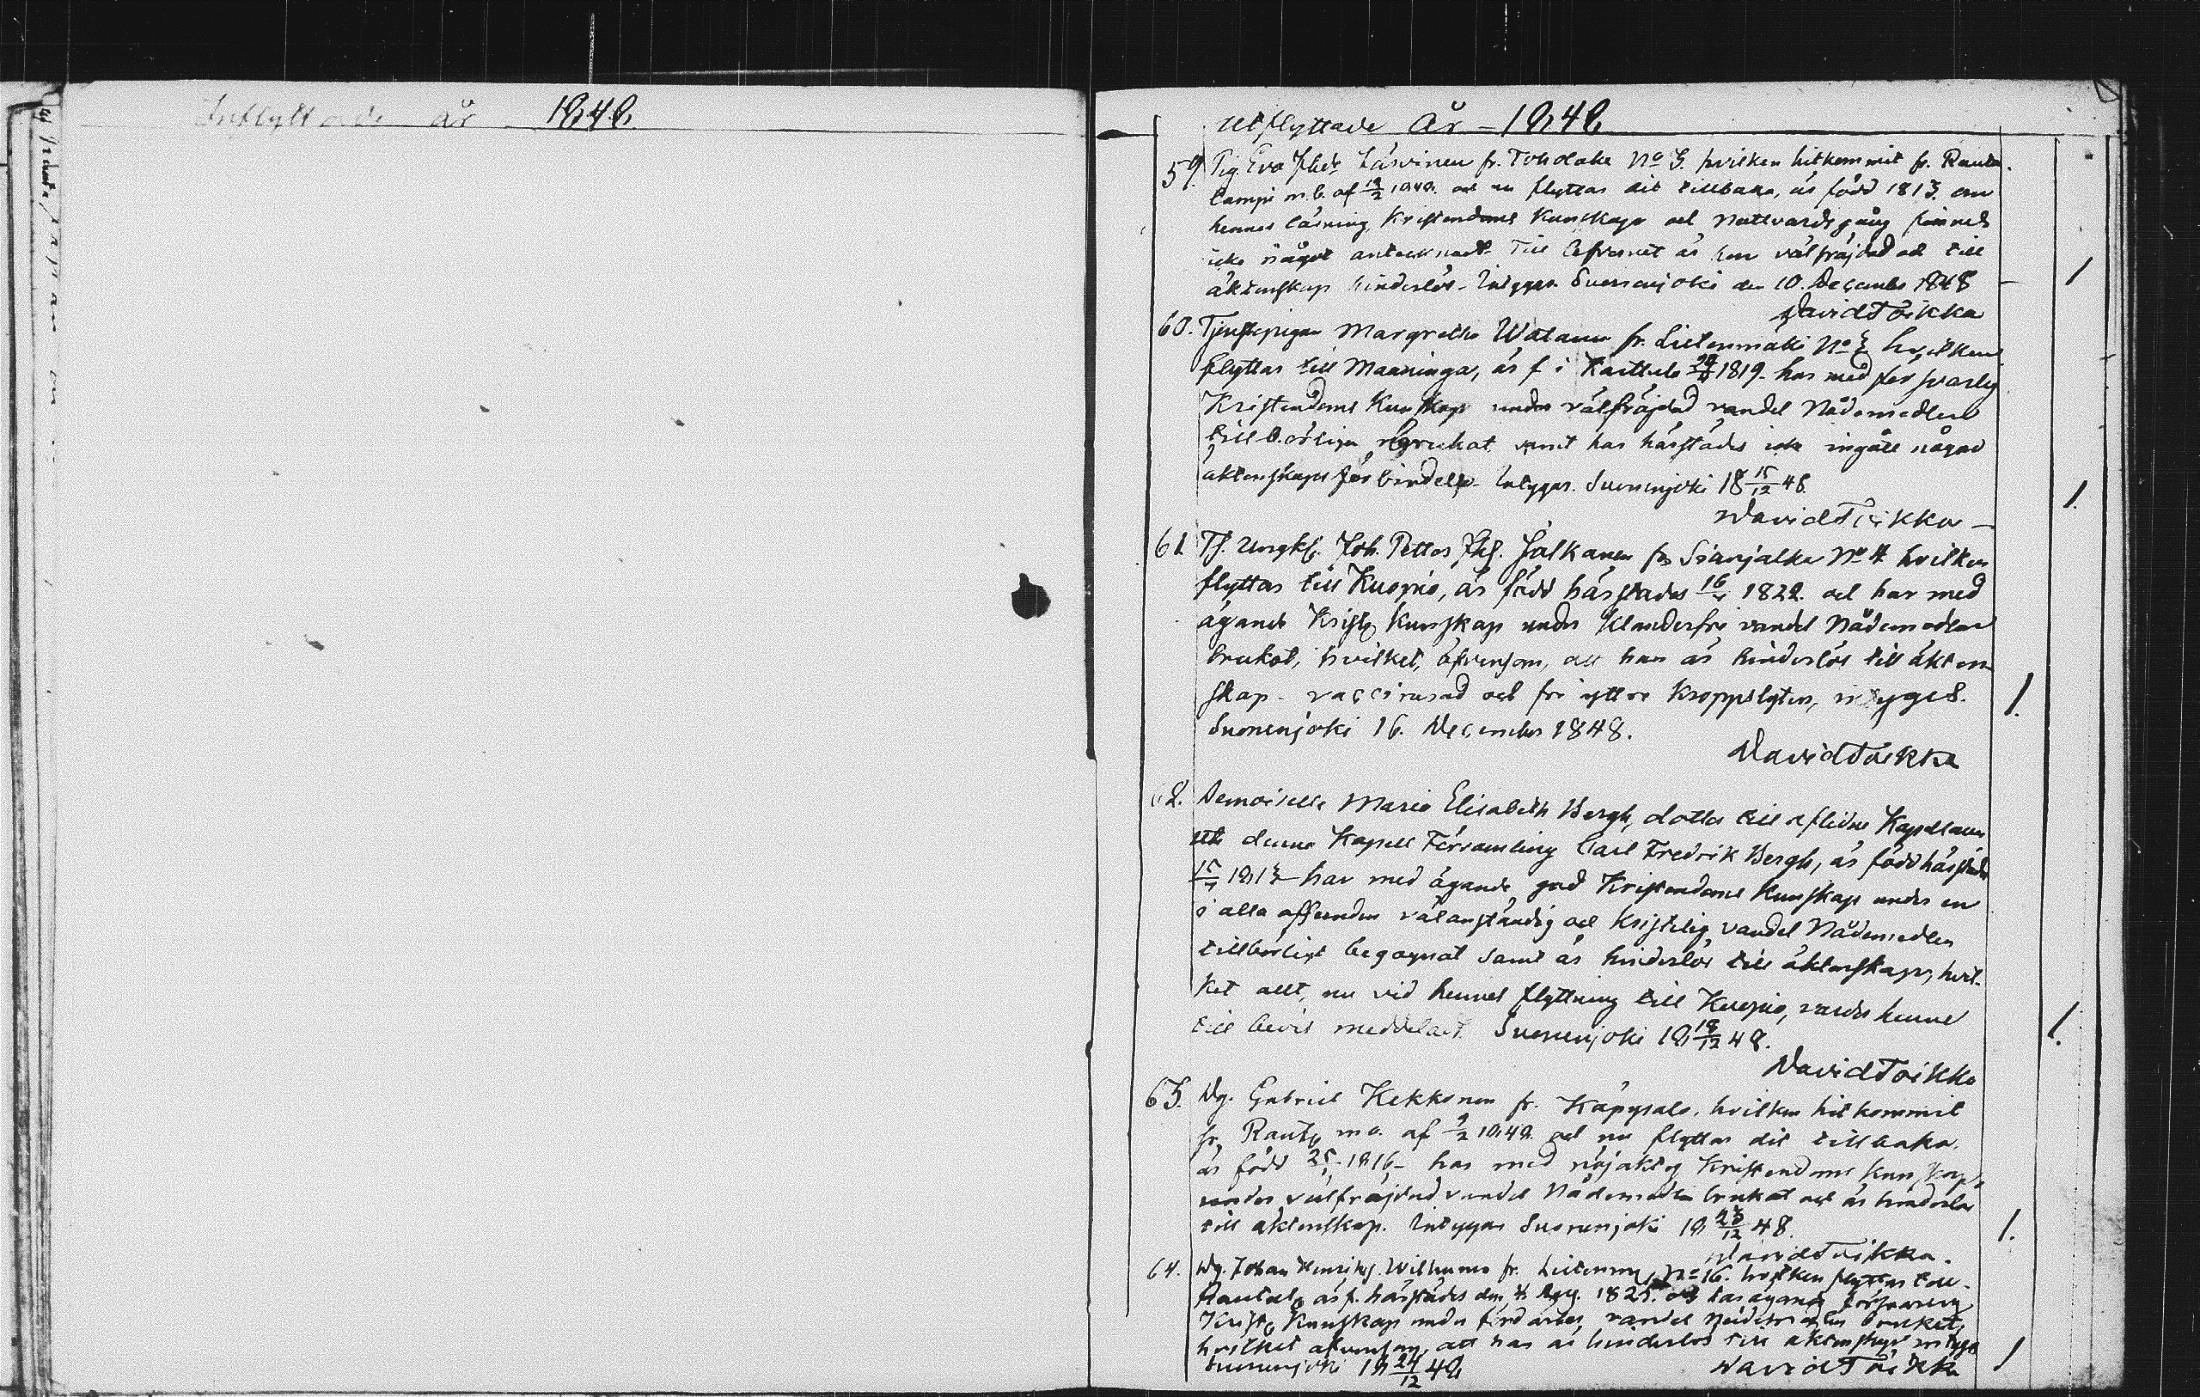 Inflyttade år 1848.
Utflyttade År – 1848
59. Pig. Eva Jhsdr Läsvinen fr. Toholaks No 3. hvilken hitkommit fr. Rauta
lampi m. b. af 19/2 1848. och nu flyttar dit tillbaka, är född 1813. om
hennes läsning, Kristendoms Kunskap och Nattvardsgång finnes
icke något antecknadt. Till lefvernet är hon välfräjdad och till
äktenskap hinderlös. Intygar. Suonenjoki den 10. December 1848
David Toikka
60. Tjenstepigan Margretha Watanen fr. Lietenmäki No hvilken
flyttar till Maaninga, är f. i Karttula 1819. har med försvarlig
Kristendoms Kunskap under välfräjdad vandel Nådemedlen
till börligen begrukat samt har härstädes icke ingått någon
äktenskaps förbindelse. Intygar. Suonenjoki 18 15/12 48.
David Toikka
61. Tj. Ungk. Joh. Petter Jhs. Jalkanen fr. Sianjalka No 4 hvilken
flyttar till Kuopio, är född härstädes 16/ 1822. och har med
ägande Kristl. Kunskap under Klanderfri vandel Nådemedlen
brukat, hvilket, äfvensom, att han är hinderlös till äkten
skap. vaccinerad och fri yttre Kroppslyten, intyges.
Suonenjoki 16. December 1848.
David Toikka
62. Demoiselle Maria Elisabeth Bergh, dotter till aflidne Kapellanen
uti denna Kapell Församling Carl Fredrik Bergh, är född härstädes
15/ 1813 har med ägande god Kristendoms Kunskap under en
i alla afseenden välanständig och Kristelig vandel Nådemedlen
tillbörligt begagnat samt är hinderlös till äktenskap, hvil-
ket allt, nu vid hennes flyttning till Kuopio, varder henne
till bevis meddeladt. Suonenjoki 18 18/12 48.
David Toikka
63. Dg. Gabriel Kekkonen fr. Käpysalo. hvilken hitkommit
fr. Rautl. m. b. af 9/2 1848 och nu flyttar dit tillbaka.
är född 25/1 1816. har med nöjaktig Kristendoms Kunskap
under välfräjdad vandel Nådemedlen brukat och är hinderlös
till äktenskap. Intygar Suonenjoki 18 23/12 48.
David Toikka.
64. Dg. Johan Henrik Wilhunen fr. Lietenm. No 16. hvilken flyttar till
Rautal. är f. härstädes den 1825. ägande försvarlig
Kristl. Kunskap under vandel Nådemedlen brukat,
hvilket äfvensom, att han är hinderlös till äktenskap intygar
Suonenjoki 18 24/12 48
David Toikka